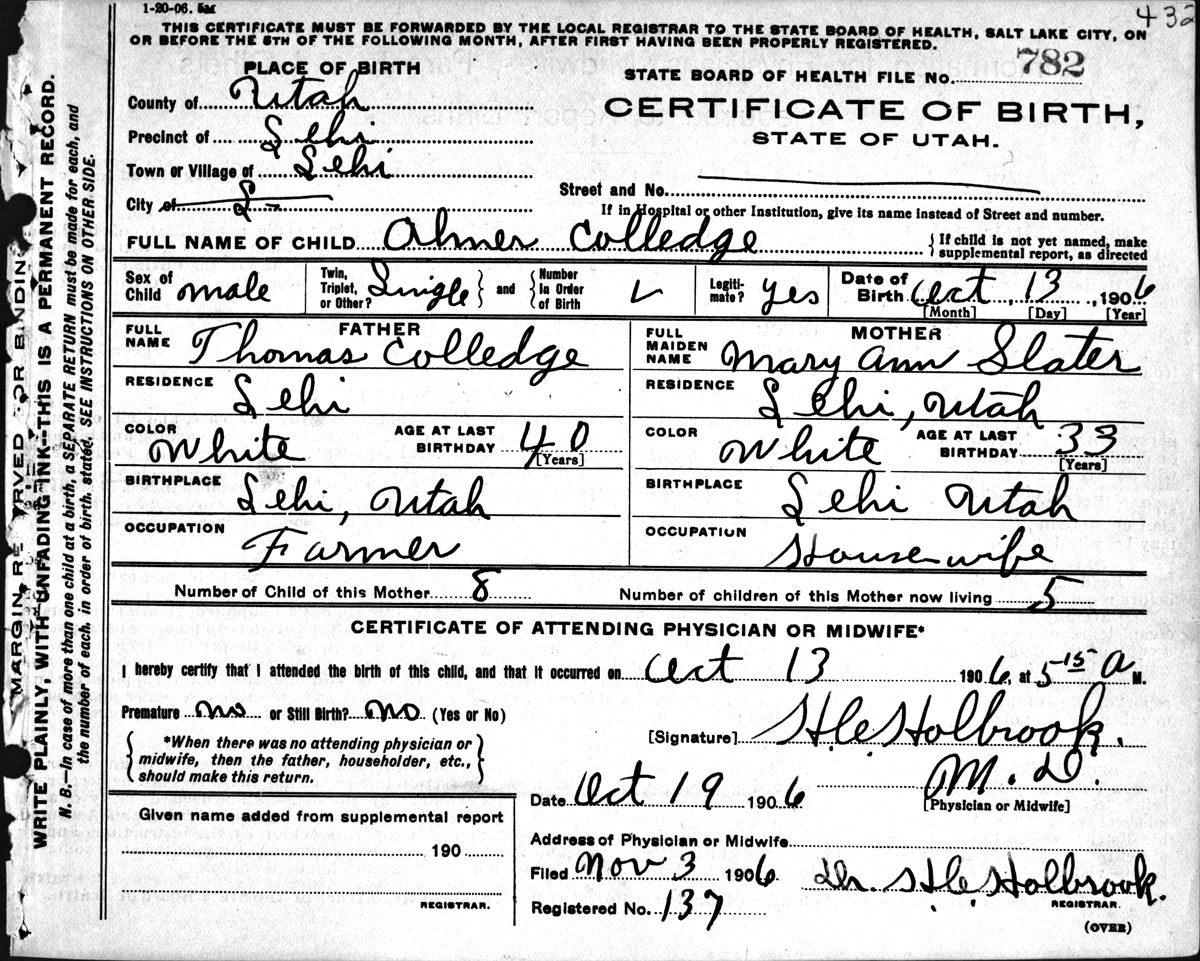 1-20-06. 5M
432
THIS CERTIFICATE MUST BE FORWARDED BY THE LOCAL REGISTRAR TO THE STATE BOARD OF HEALTH, SALT LAKE CITY, ON
OR BEFORE THE 5TH OF THE FOLLOWING MONTH, AFTER FIRST HAVING BEEN PROPERLY REGISTERED.
PLACE OF BIRTH
STATE BOARD OF HEALTH FILE NO. 782
County of Utah
CERTIFICATE OF BIRTH,
Precinct of Lehi
STATE OF UTAH.
Town or Village of Lehi
Street and No.
City of L
If in Hospital or other Institution, give its name instead of Street and number.
FULL NAME OF CHILD Almer Colledge
{ If child is not yet named, make
supplemental report, as directed
Sex of Child male
Twin, Triplet, or Other? Single } and { Number in Order of Birth
Legiti-mate? yes
Date of Birth Oct, 13, 1906
[Month] [Day] [Year]
FATHER
FULL NAME Thomas Colledge
MOTHER
FULL MAIDEN NAME Mary Ann Slater
RESIDENCE Lehi
RESIDENCE Lehi, Utah
COLOR White AGE AT LAST BIRTHDAY 40 [Years]
COLOR White AGE AT LAST BIRTHDAY 33 [Years]
BIRTHPLACE Lehi, Utah
BIRTHPLACE Lehi Utah
OCCUPATION Farmer
OCCUPATION Housewife
Number of Child of this Mother 8 Number of children of this Mother now living 5
CERTIFICATE OF ATTENDING PHYSICIAN OR MIDWIFE*
I hereby certify that I attended the birth of this child, and that it occurred on Oct 13 1906, at 5-15 A M.
Premature no or Still Birth? no (Yes or No)
[Signature] H.C. Holbrook.
{ *When there was no attending physician or
midwife, then the father, householder, etc.,
should make this return. }
M. D.
[Physician or Midwife]
Date Oct 19 1906
Given name added from supplemental report
190
REGISTRAR.
Address of Physician or Midwife
Filed Nov 3 1906 Dr. H.C. Holbrook.
REGISTRAR.
Registered No. 137
(OVER)
MARGIN RESERVED FOR BINDING
WRITE PLAINLY, WITH UNFADING INK--THIS IS A PERMANENT RECORD.
N. B.--In case of more than one child at a birth, a SEPARATE RETURN must be made for each, and
the number of each, in order of birth, stated. SEE INSTRUCTIONS ON OTHER SIDE.